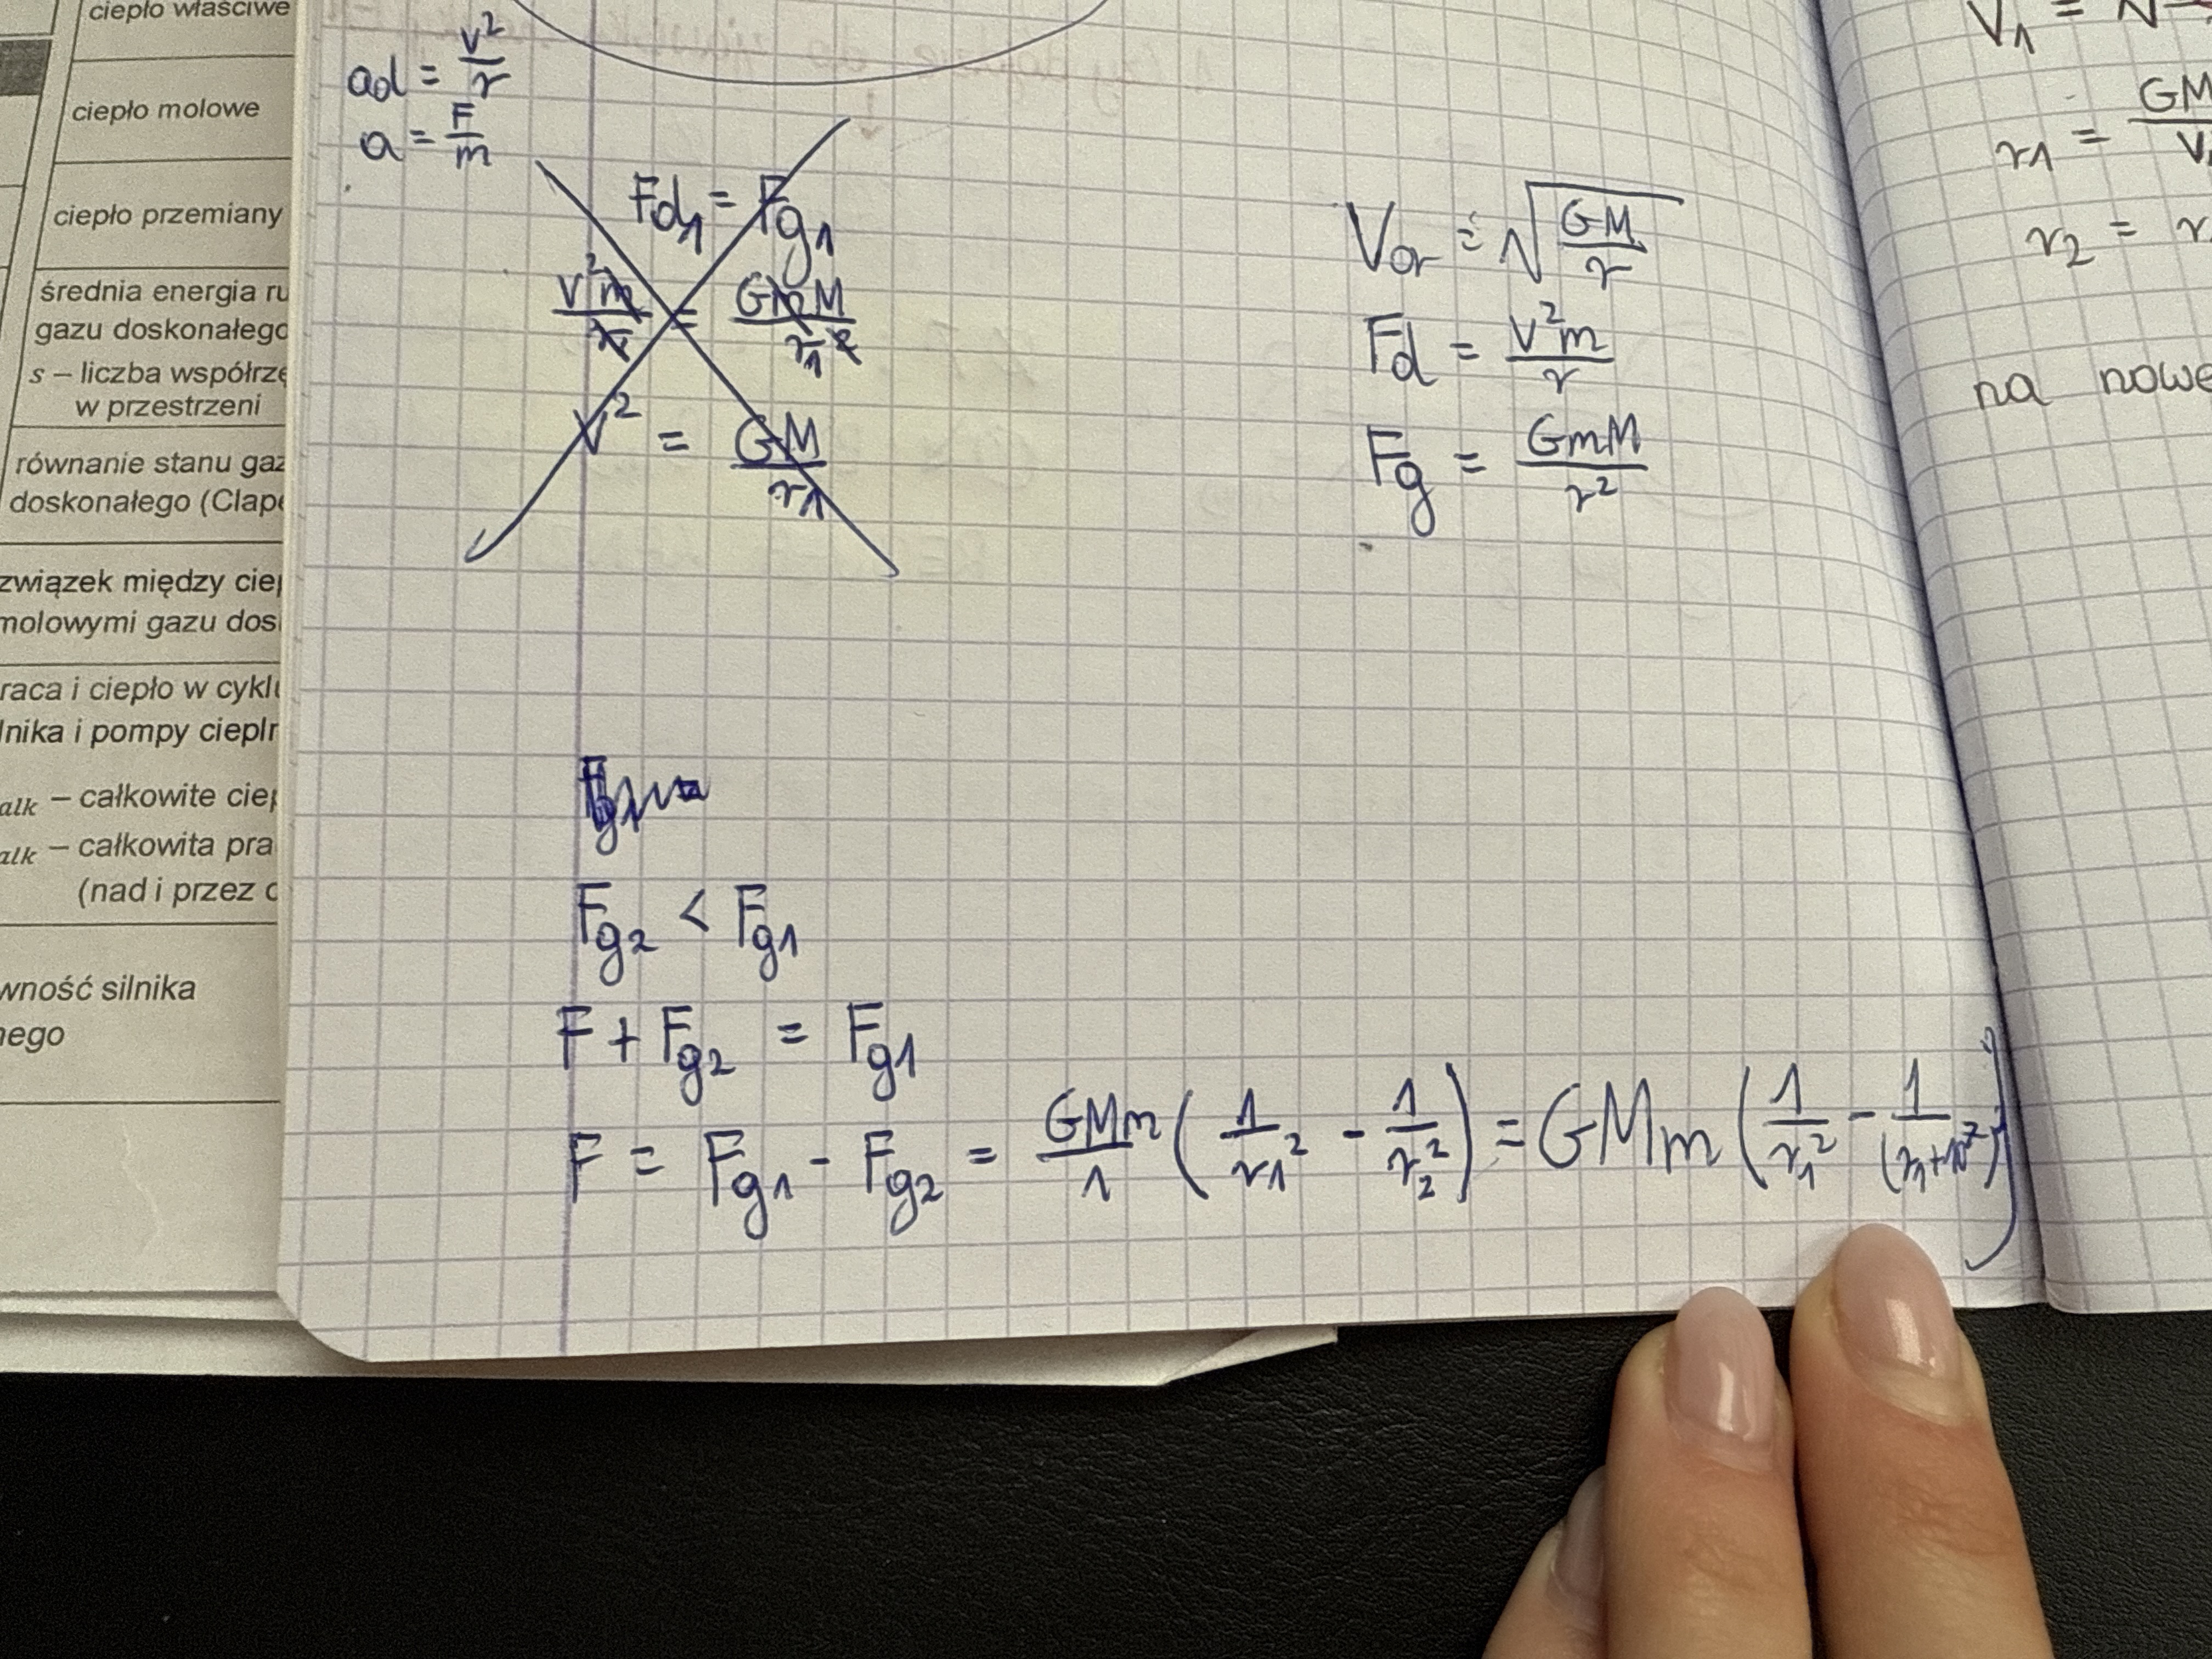 ciepło właściwe
ciepło molowe
ciepło przemiany
średnia energia ru
gazu doskonałego
s – liczba współrzę
w przestrzeni
równanie stanu gaz
doskonałego (Clape
związek między ciep
molowymi gazu dos
raca i ciepło w cyklu
lnika i pompy ciepln
alk – całkowite ciep
alk – całkowita pra
(nad i przez
wność silnika
nego
ad = v²/r
a = F/m
Fd1 = Fg1
v²m/r1 = GmM/r1²
V² = GM/r1
Vor = √(GM/r)
Fd = V²m/r
Fg = GmM/r²
Fg2 < Fg1
F + Fg2 = Fg1
F = Fg1 - Fg2 = GMm/1 (1/r1² - 1/r2²) = GMm (1/r1² - 1/(r1+
V1 = √
r1 = GM/V
r2 = r
na nowe